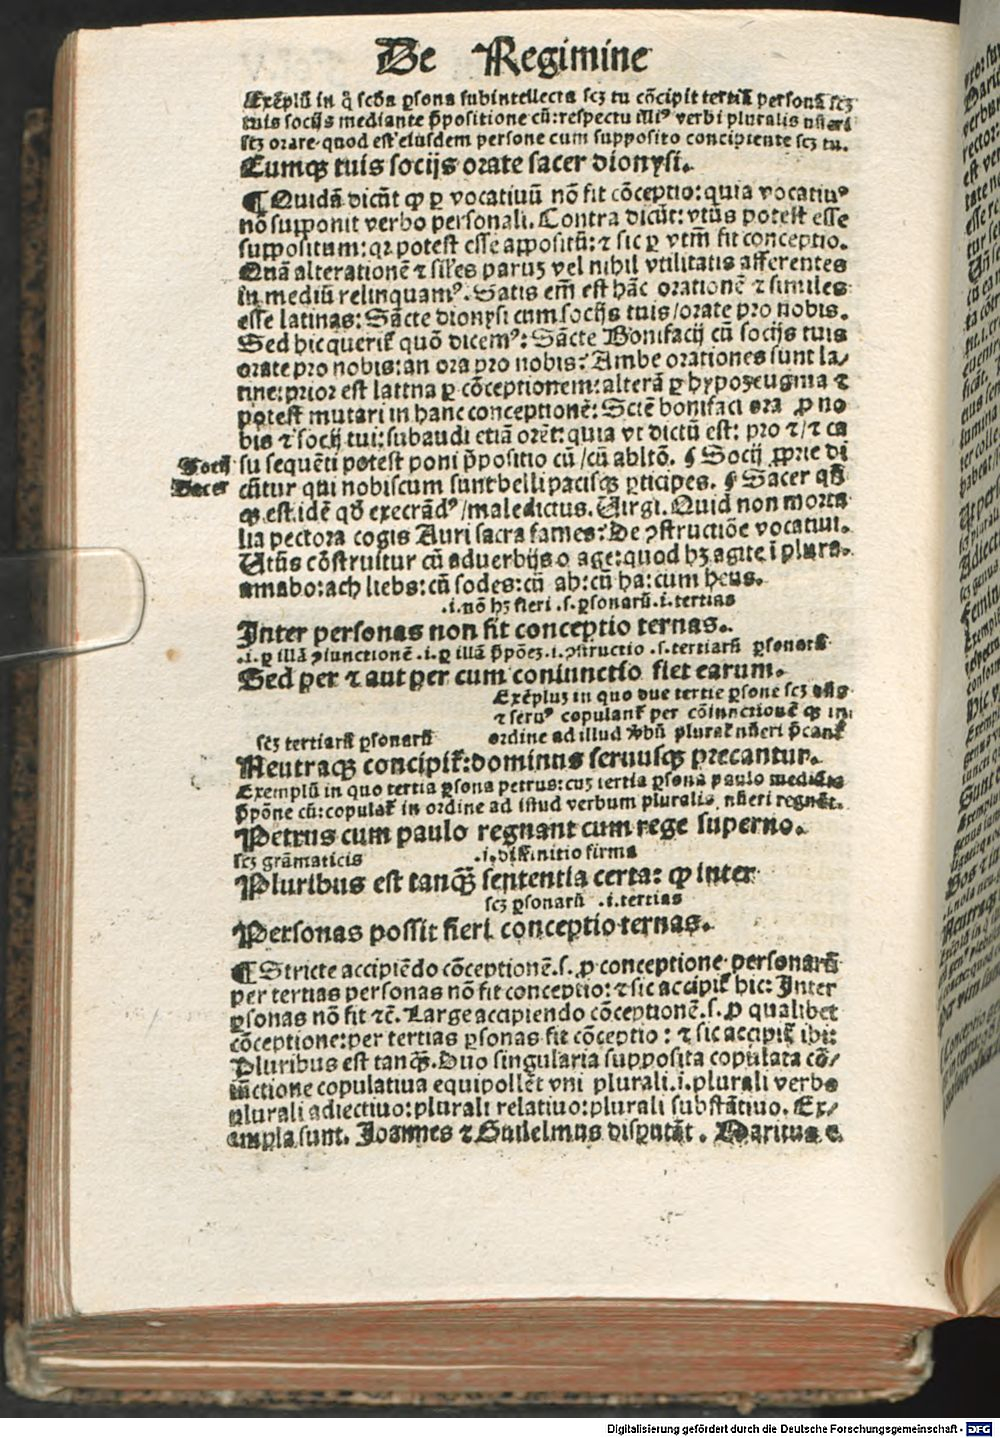 De Regimine
Exēplū in q̄ scḋa ꝑsona subintellecta scꝫ tu cōcipit tertiā personā scꝫ
tuis socijs mediante p̄positione cū: respectu illiꝰ verbi pluralis nūeri
scꝫ orare quod est eiusdem persone cum supposito concipiente scꝫ tu.
Cumqꝫ tuis socijs orate sacer dionysi.
¶ Quidā dicūt ꝙ ꝑ vocatiuū nō fit cōceptio: quia vocatiuꝰ
nō supponit verbo personali. Contra dicūt: vtūs potest esse
suppositum: qꝛ potest esse appositū: ⁊ sic ꝑ vtm̄ fit conceptio.
Quā alterationē ⁊ sil'es paruꝫ vel nihil vtilitatis afferentes
in mediū relinquamꝰ. Satis em̄ est hāc orationē ⁊ similes
esse latinas: Sācte dionysi cum socijs tuis / orate pro nobis.
Sed hic querit̄ quō dicemꝰ: Sācte Bonifacij cū socijs tuis
orate pro nobis: an ora pro nobis: Ambe orationes sunt la/
tine: prior est latina ꝑ cōceptionem: alterā ꝑ hypozeugma ⁊
potest mutari in hanc conceptionē: Sctē bonifaci ora ꝓ no
bis ⁊ socij tui: subaudi etiā orēt: quia vt dictū est: pro ⁊ / ⁊ ca
Socij su sequēti potest poni p̄positio cū / cū abltō. ¶ Socij ꝓprie di
Sacer cūtur qui nobiscum sunt belli pacisqꝫ ꝑticipes. ¶ Sacer qn̄
qꝫ est idē qḋ execrādꝰ / maledictus. Virgi. Quid non morta
lia pectora cogis Auri sacra fames: De ꝯstructiōe vocatiui.
Vtūs cōstruitur cū aduerbijs o age: quod hꝫ agite ī plura.
amabo: ach liebs: cū sodes: cū ah: cū ha: cum heus.
.i. nō hꝫ fieri .s. ꝑsonarū .i. tertias
Inter personas non fit conceptio ternas.
.i. ꝑ illā ꝯiunctionē .i. ꝑ illā p̄pōeꝫ .i. ꝯstructio .s. tertiarū ꝑsonarū
Sed per ⁊ aut per cum coniunctio fiet earum.
Exēpluꝫ in quo due tertie ꝑsone scꝫ
⁊ seruꝰ copulant̄ per cōiunctionē qꝫ in
scꝫ tertiarū ꝑsonarū ordine ad illud v̄bū plural' nūeri p̄cant̄
Neutraqꝫ concipit̄: dominus seruusqꝫ precantur.
Exemplū in quo tertia ꝑsona petrus: cuꝫ tertia ꝑsona paulo mediāte
p̄pōne cū: copulat̄ in ordine ad istud verbum pluralis nūeri regnāt.
Petrus cum paulo regnant cum rege superno.
scꝫ grāmaticis .i. diffinitio firma
Pluribus est tanqꝫ sententia certa: ꝙ inter
scꝫ ꝑsonarū .i. tertias
Personas possit fieri conceptio ternas.
¶ Stricte accipiēdo cōceptionē .s. ꝓ conceptione personarū
per tertias personas nō fit conceptio: ⁊ sic accipit̄ hic: Inter
ꝑsonas nō fit ⁊c̄. Large accipiendo cōceptionē .s. ꝓ qualibet
cōceptione: per tertias ꝑsonas fit cōceptio: ⁊ sic accipit̄ ibi:
Pluribus est tanqꝫ. Duo singularia supposita copulata cō/
iūctione copulatiua equipollēt vni plurali .i. plurali verbo
plurali adiectiuo: plurali relatiuo: plurali substātiuo. Ex/
ampla sunt. Joannes ⁊ Guilelmus disputāt. Maritus e
Digitalisierung gefördert durch die Deutsche Forschungsgemeinschaft - DFG